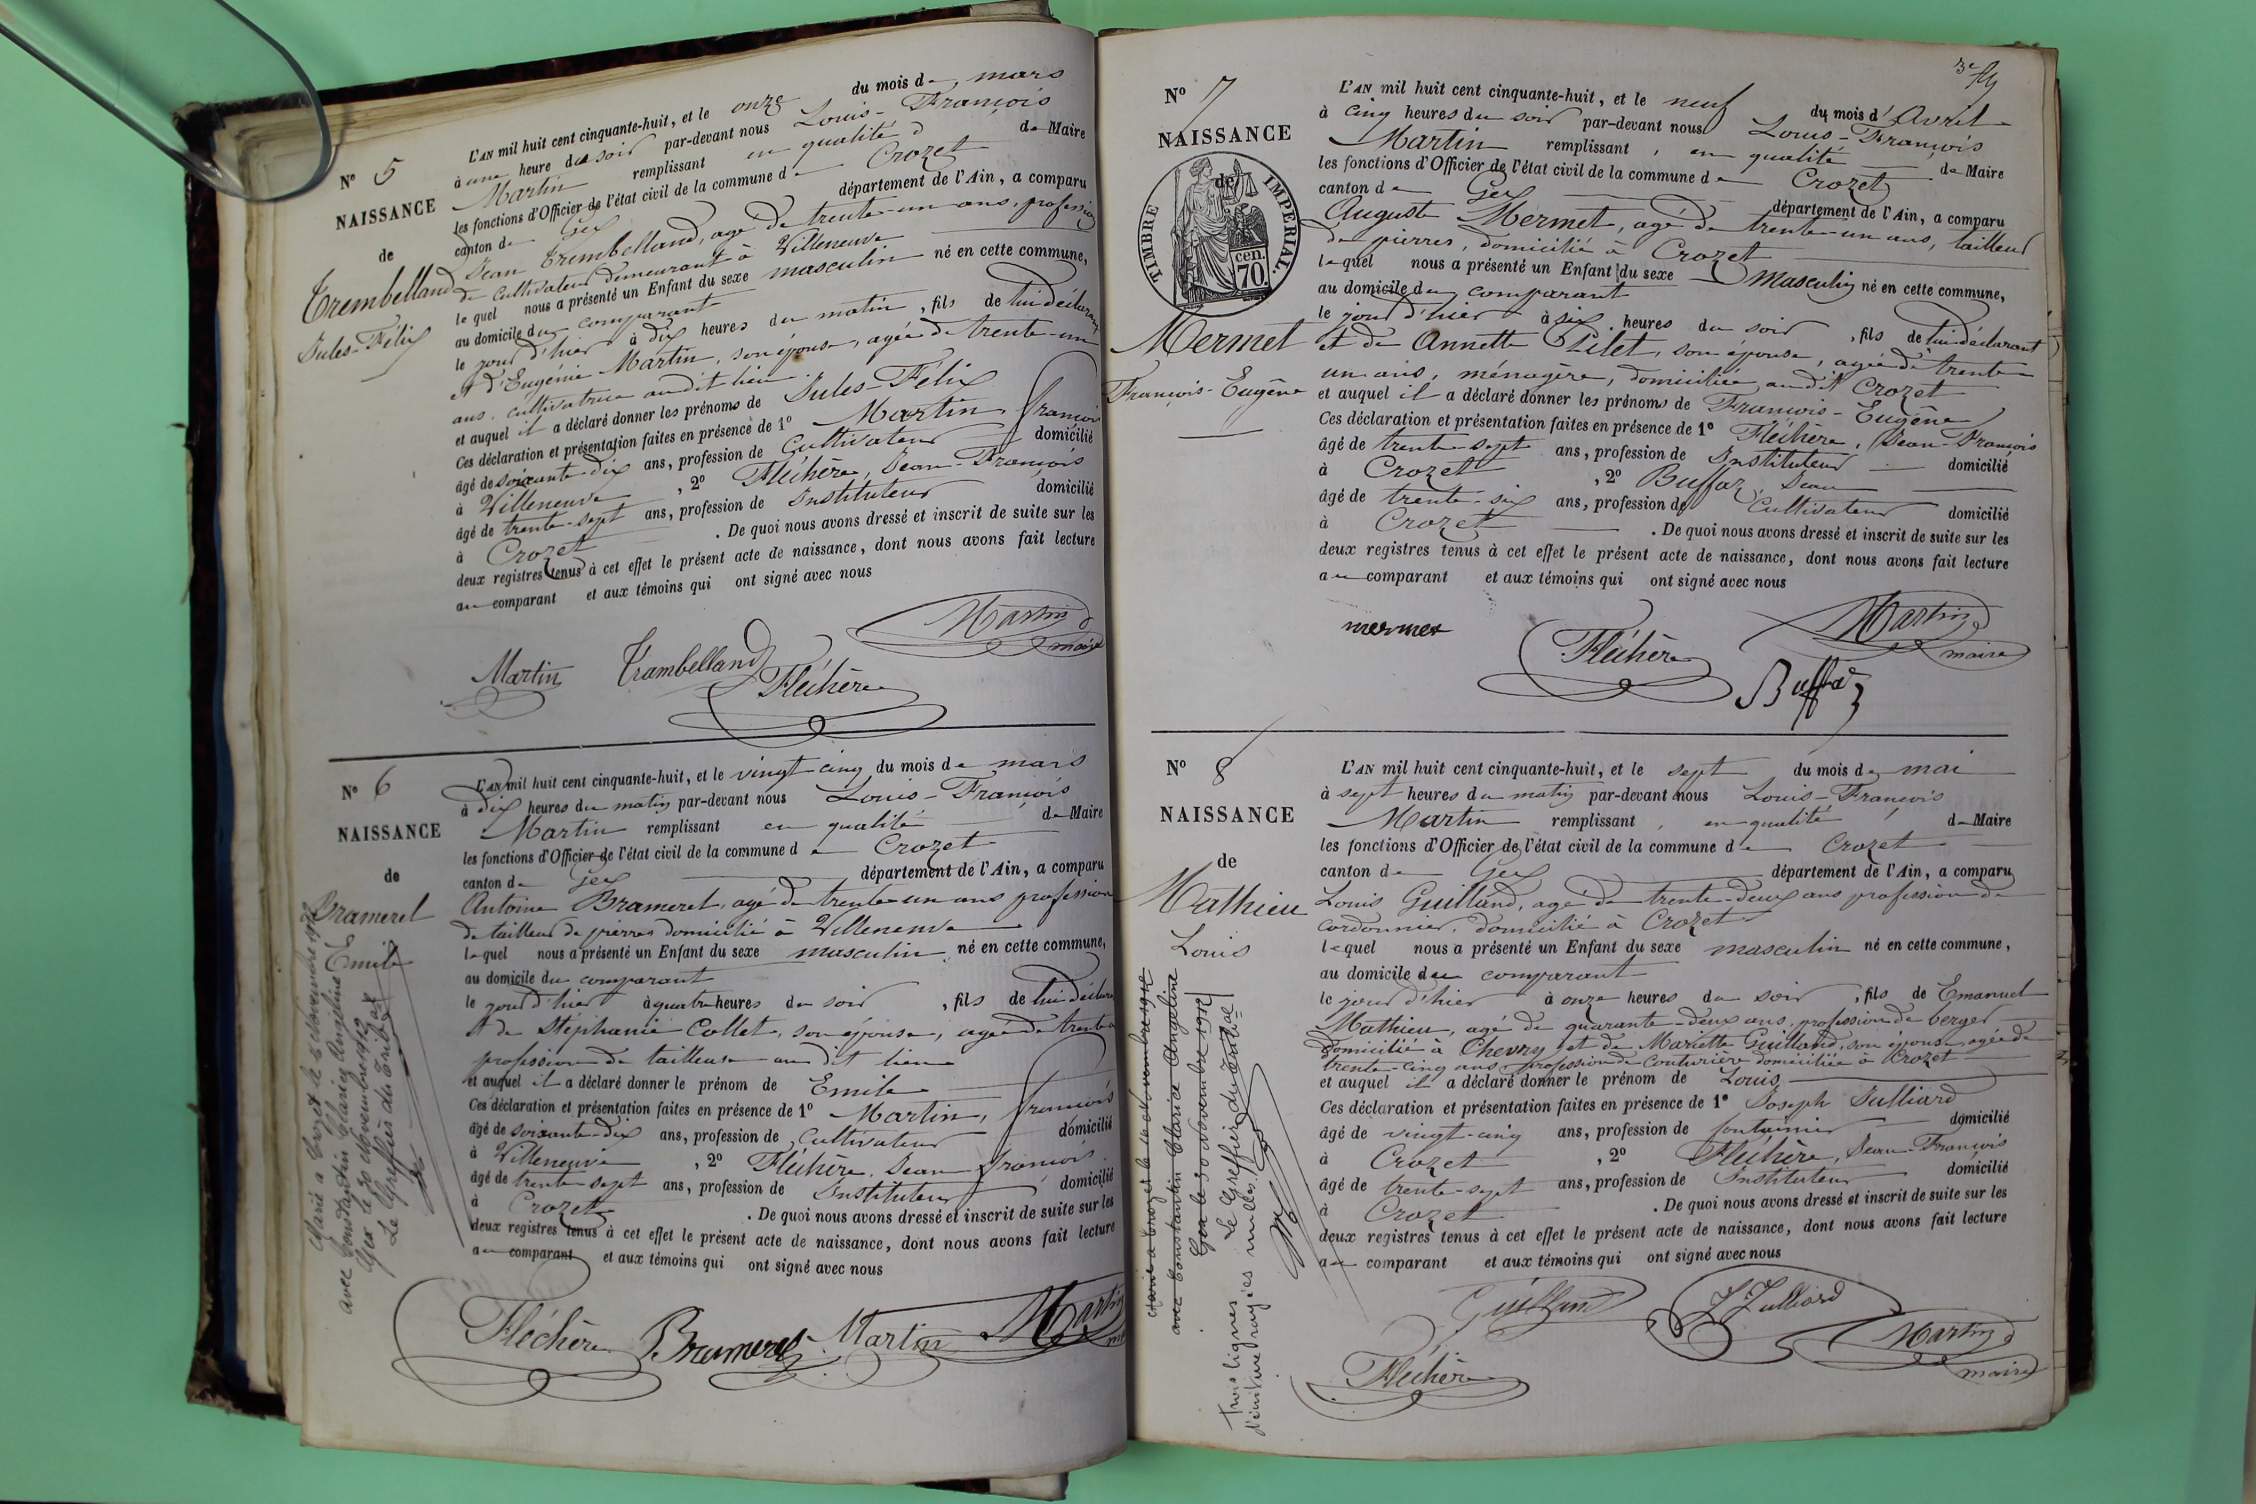 N° 5
NAISSANCE
de
Trembelland
Jules-Félix
L'AN mil huit cent cinquante-huit, et le onze du mois de mars
à une heure du soir par-devant nous Louis-François
Martin remplissant en qualité de Maire
les fonctions d'Officier de l'état civil de la commune de Crozet
canton de Gex département de l'Ain, a comparu
Jean Trembelland, âgé de trente-un ans, profession
de cultivateur demeurant à Villeneuve
lequel nous a présenté un Enfant du sexe masculin né en cette commune,
au domicile du comparant
le jour d'hier à dix heures du matin, fils de lui déclarant
et d'Eugénie Martin, son épouse, agée de trente-un
ans, cultivatrice audit lieu
et auquel il a déclaré donner les prénoms de Jules-Félix
Ces déclaration et présentation faites en présence de 1° Martin, François
âgé de soixante-dix ans, profession de Cultivateur domicilié
à Villeneuve, 2° Fléchère, Jean-François
âgé de trente-sept ans, profession de Instituteur domicilié
à Crozet. De quoi nous avons dressé et inscrit de suite sur les
deux registres tenus à cet effet le présent acte de naissance, dont nous avons fait lecture
au comparant et aux témoins qui ont signé avec nous
Martin
maire
Martin Trambelland Fléchère
N° 6
NAISSANCE
de
Brameret
Emile
Marié à Crozet le
avec Constantin Clarice Angeline
Gex le 30 Novembre 1912
Le Greffier du Tribal
L'AN mil huit cent cinquante-huit, et le vingt-cinq du mois de mars
à dix heures du matin par-devant nous Louis-François
Martin remplissant en qualité de Maire
les fonctions d'Officier de l'état civil de la commune de Crozet
canton de Gex département de l'Ain, a comparu
Antoine Brameret, agé de trente-un ans profession
de tailleur de pierres domicilié à Villeneuve
lequel nous a présenté un Enfant du sexe masculin né en cette commune,
au domicile du comparant
le jour d'hier à quatre heures du soir, fils de lui déclarant
et de Stéphanie Collet, son épouse, agée de trente
profession de tailleuse au dit lieu
et auquel il a déclaré donner le prénom de Emile
Ces déclaration et présentation faites en présence de 1° Martin, François
âgé de soixante-dix ans, profession de Cultivateur domicilié
à Villeneuve, 2° Fléchère, Jean François
âgé de trente-sept ans, profession de Instituteur domicilié
à Crozet. De quoi nous avons dressé et inscrit de suite sur les
deux registres tenus à cet effet le présent acte de naissance, dont nous avons fait lecture
au comparant et aux témoins qui ont signé avec nous
Fléchère Brameret Martin Martin
N° 7
NAISSANCE
de
TIMBRE IMPERIAL.
cen.
70.
Mermet
François-Eugène
L'AN mil huit cent cinquante-huit, et le neuf du mois d'Avril
à cinq heures du soir par-devant nous Louis-François
Martin remplissant, en qualité de Maire
les fonctions d'Officier de l'état civil de la commune de Crozet
canton de Gex département de l'Ain, a comparu
Auguste Mermet, agé de trente-un ans, tailleur
de pierres, domicilié à Crozet
lequel nous a présenté un Enfant du sexe Masculin né en cette commune,
au domicile du comparant
le jour d'hier à six heures du soir, fils de lui déclarant
et de Annette Pilet, son épouse, agée de trente
un ans, ménagère, domiciliée au dit Crozet
et auquel il a déclaré donner les prénoms de François-Eugène
Ces déclaration et présentation faites en présence de 1° Fléchère, Jean-François
âgé de trente-sept ans, profession de Instituteur domicilié
à Crozet, 2° Buffaz, Jean
âgé de trente-six ans, profession de Cultivateur domicilié
à Crozet. De quoi nous avons dressé et inscrit de suite sur les
deux registres tenus à cet effet le présent acte de naissance, dont nous avons fait lecture
au comparant et aux témoins qui ont signé avec nous
mermet Fléchère Martin
maire
Buffaz
N° 8
NAISSANCE
de
Mathieu
Louis
avec Constantin Clarice Angeline
Gex le 30 Novembre 1912
Le Greffier du Tribal
Trois lignes
d'écriture rayées nulles.
L'AN mil huit cent cinquante-huit, et le sept du mois de mai
à sept heures du matin par-devant nous Louis-François
Martin remplissant, en qualité de Maire
les fonctions d'Officier de l'état civil de la commune de Crozet
canton de Gex département de l'Ain, a comparu
Louis Guilland, agé de trente-deux ans profession de
cordonnier, domicilié à Crozet
lequel nous a présenté un Enfant du sexe masculin né en cette commune,
au domicile du comparant
le jour d'hier à onze heures du soir, fils de Emanuel
Mathieu, agé de quarante-deux ans, profession de berger
domicilié à Chevry et de Mariette Guilland, son épouse, agée de
trente-cinq ans profession de couturière domiciliée à Crozet
et auquel il a déclaré donner le prénom de Louis
Ces déclaration et présentation faites en présence de 1° Joseph Julliard
âgé de vingt-cinq ans, profession de fontainier domicilié
à Crozet, 2° Fléchère, Jean-François
âgé de trente-sept ans, profession de Instituteur domicilié
à Crozet. De quoi nous avons dressé et inscrit de suite sur les
deux registres tenus à cet effet le présent acte de naissance, dont nous avons fait lecture
au comparant et aux témoins qui ont signé avec nous
Guilland J Julliard
Martin
maire
Fléchère